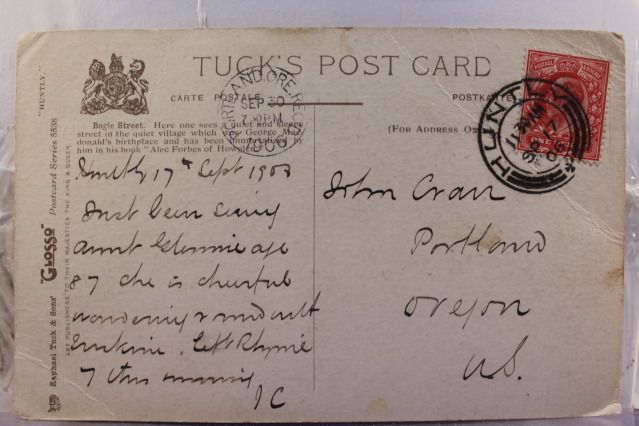 TUCK'S POST CARD
CARTE POSTALE
POSTKARTE
(For Address Only
"HUNTLY."
Bogie Street. Here one sees a quiet and sleepy
street in the quiet village which was George Mac-
donald's birthplace and has been immortalized by
him in his book "Alec Forbes of Howglen
PORTLAND, ORE. REC'D
SEP 30
7-30 PM
HUNTLY
11.30 AM
SP 17
Huntly 17th Sept 1908
Just been seeing
aunt Glennie age
87 she is cheerful
wandering &
Left Rhynie
7 this morning
JC
John Cran
Portland
Oregon
US.
"GLOSSO" Postcard Series 5538.
Raphael Tuck & Sons'
ART PUBLISHERS TO THEIR MAJESTIES THE KING & QUEEN.